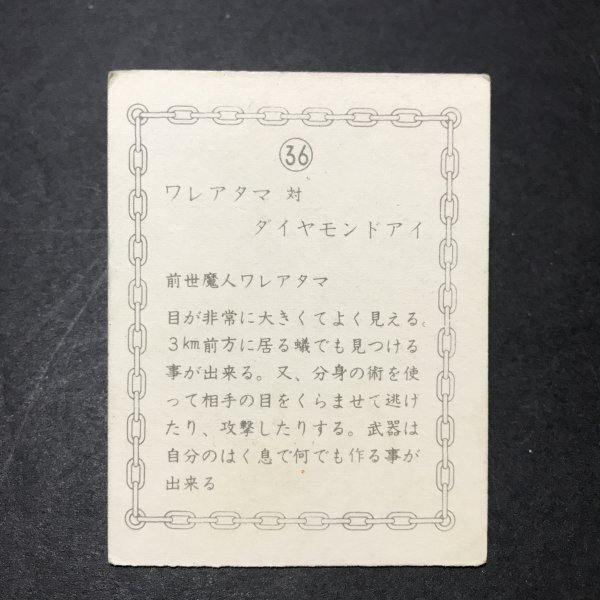 36
ワレアタマ 対
ダイヤモンドアイ
前世魔人ワレアタマ
目が非常に大きくてよく見える。
3km前方に居る蟻でも見つける
事が出来る。又、分身の術を使
って相手の目をくらませて逃げ
たり、攻撃したりする。武器は
自分のはく息で何でも作る事が
出来る